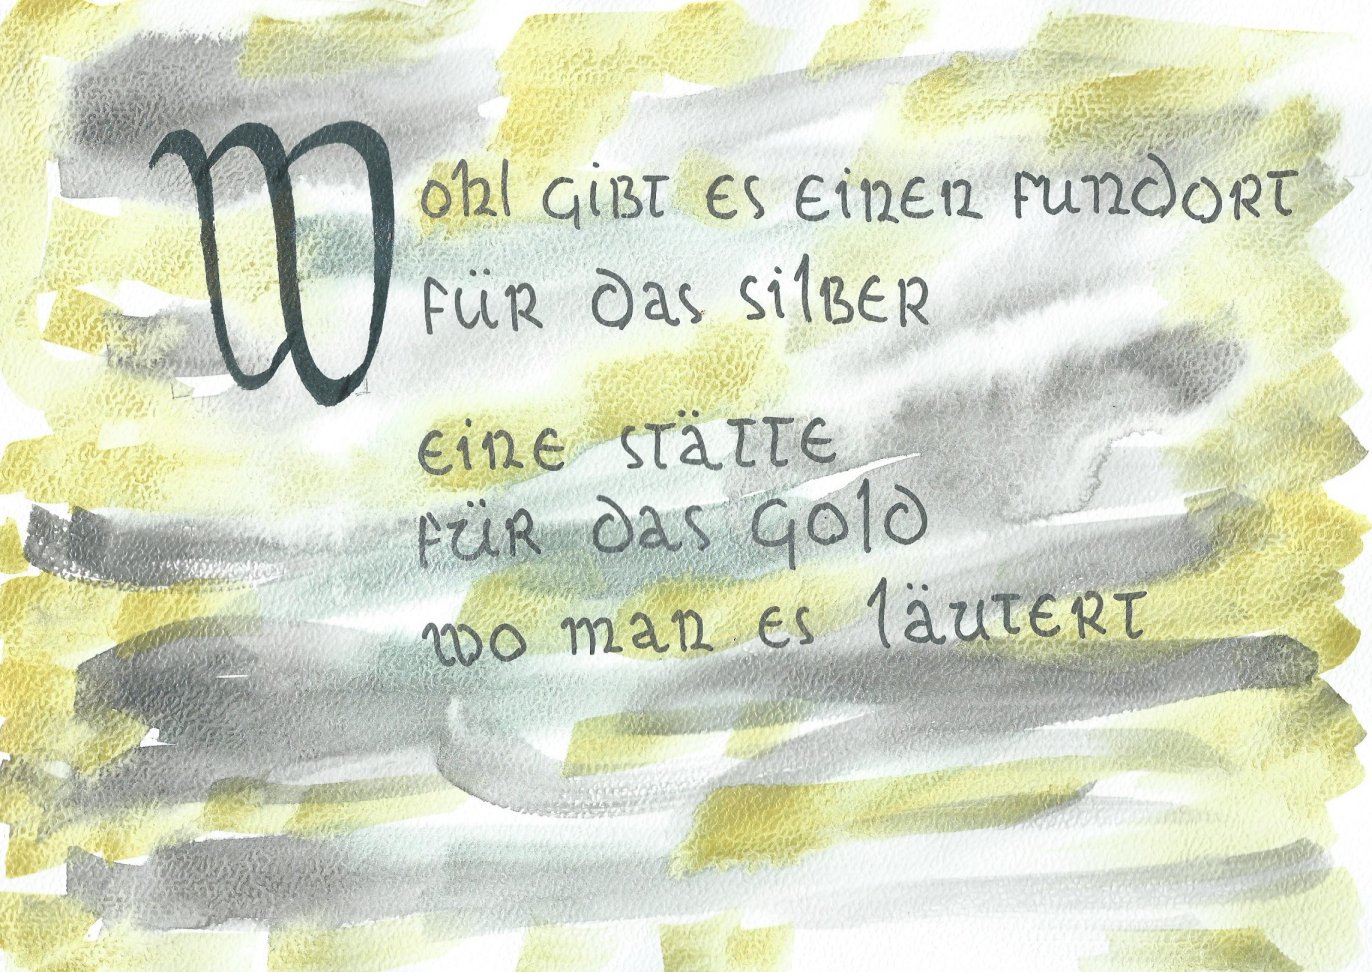 Wohl gibt es einen Fundort
für das Silber
eine Stätte
für das Gold
wo man es läutert